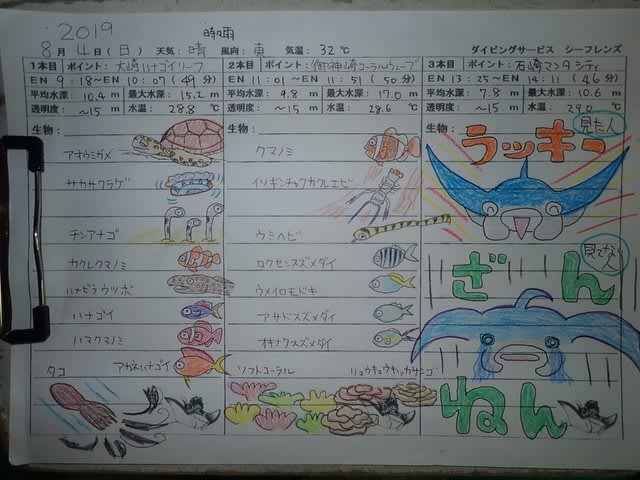 2019
時々雨
8月 4日(日) 天気: 晴 風向: 東 気温: 32℃ ダイビングサービス シーフレンズ
1本目 ポイント: 大崎ハナゴイリーフ
EN 9:18~EN 10:07(49分)
平均水深: 10.4m 最大水深: 15.2m
透明度: ~15m 水温: 28.8℃
生物:
アオウミガメ
サカサクラゲ
チンアナゴ
カクレクマノミ
ハナビラウツボ
ハナゴイ
ハマクマノミ
タコ アカネハナゴイ
2本目 ポイント: 御神崎コーラルウェーブ
EN 11:01~EN 11:51(50分)
平均水深: 9.8m 最大水深: 17.0m
透明度: ~15m 水温: 28.6℃
生物:
クマノミ
イソギンチャクカクレエビ
ウミヘビ
ロクセンスズメダイ
ウメイロモドキ
アサドスズメダイ
オキナワスズメダイ
ソフトコーラル リュウキュウキッカサンゴ
3本目 ポイント: 石崎マンタシティ
EN 13:25~EN 14:11(46分)
平均水深: 7.8m 最大水深: 10.6m
透明度: ~15m 水温: 29.0℃
生物:
見た人
ラッキー
見てない人
ざん
ねん